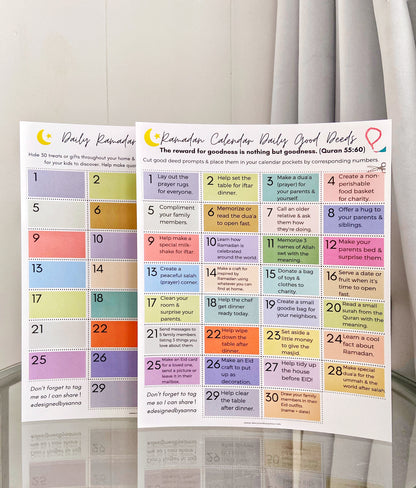 Daily Ramadan
Hide 30 treats or gifts throughout your home &
for your kids to discover. Help make
1
2
5
6
9
10
13
14
17
18
21
22
25
26
29
Don't forget to tag
me so I can share !
#designedbysanna
Ramadan Calendar Daily Good Deeds
The reward for goodness is nothing but goodness. (Quran 55:60)
Cut good deed prompts & place them in your calendar pockets by corresponding numbers.
1 Lay out the
prayer rugs
for everyone.
2 Help set the
table for iftar
dinner.
3 Make a dua'a
(prayer) for your
parents &
yourself.
4 Create a non-
perishable
food basket
for charity.
5 Compliment
your family
members.
6 Memorize or
read the dua'a
to open fast.
7 Call an older
relative & ask
them how
they're doing.
8 Offer a hug to
your parents &
siblings.
9 Help make a
special milk-
shake for iftar.
10 Learn how
Ramadan is
celebrated
around the world.
11 Memorize 3
names of Allah
swt with the
meaning.
12 Make your
parents bed &
surprise them.
13 Create a
peaceful salah
(prayer) corner.
14 Make a craft for
inspired by
Ramadan using
whatever you can
find at home.
15 Donate a bag
of toys &
clothes to
charity.
16 Serve a date or
fruit when it's
time to open
fast.
17 Clean your
room &
surprise your
parents.
18 Help the chef
get dinner
ready today.
19 Create a small
goodie bag for
your neighbors.
20 Read a small
surah from the
Quran with the
meaning.
21 Send messages to
3 family members
listing 3 things you
love about them
22 Help wipe
down the
table after
dinner.
23 Set aside a
little money
to give the
masjid.
24 Learn a cool
fact about
Ramadan.
25 Make an Eid card
for a loved one,
send a picture or
leave it in their
mailbox.
26 Make an Eid
craft to put
up as
decoration.
27 Help tidy up
the house
before EID!
28 Make a
special dua'a
for the
ummah & the
world after salah
Don't forget to tag
me so I can share !
#designedbysanna
29 Help clear
the table
after dinner.
30 Draw your family
members in their
Eid outfits.
(name + date)